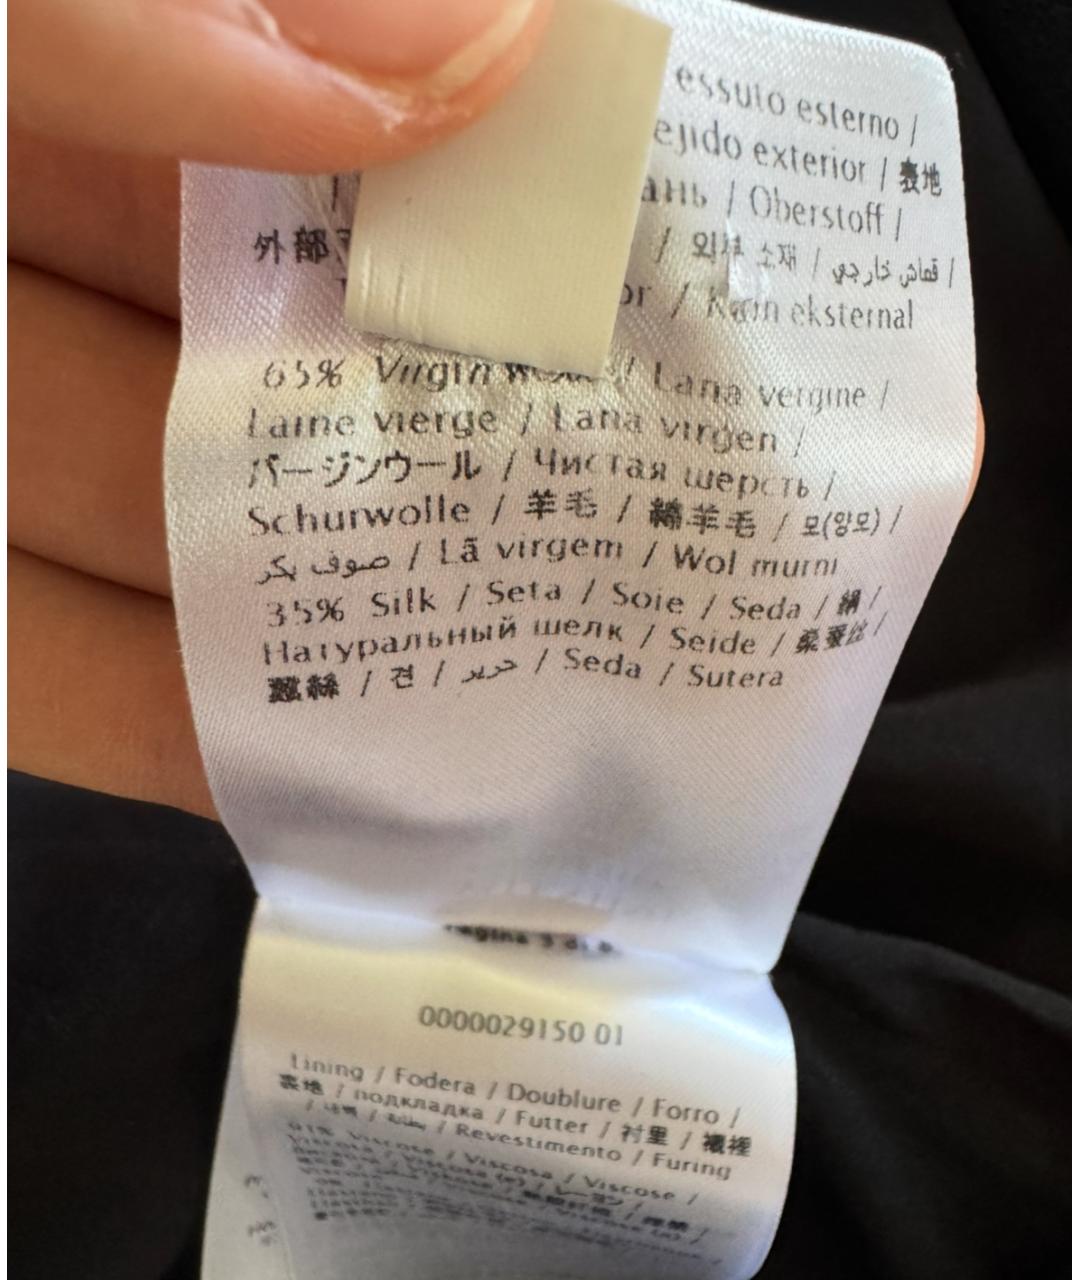 essuto esterno /
ejido exterior / 表地
ань / Oberstoff /
外部 / 외부 소재 / قماش خارجي /
or / Kain eksternal
65% Virgin / Lana vergine /
Laine vierge / Lana virgen /
バージンウール / Чистая шерсть /
Schurwolle / 羊毛 / 綿羊毛 / 모(양모) /
صوف بكر / Lã virgem / Wol murni
35% Silk / Seta / Soie / Seda / 絹 /
Натуральный шелк / Seide / 桑蚕丝 /
蠶絲 / 견 / حرير / Seda / Sutera
Pagina 3 di 8
0000029150 01
Lining / Fodera / Doublure / Forro /
裏地 / подкладка / Futter / 衬里 / 襯裡
/ 내벽 / بطانة / Revestimento / Furing
91% Viscose / Viscosa / Viscose /
Viscosa / レーヨン /